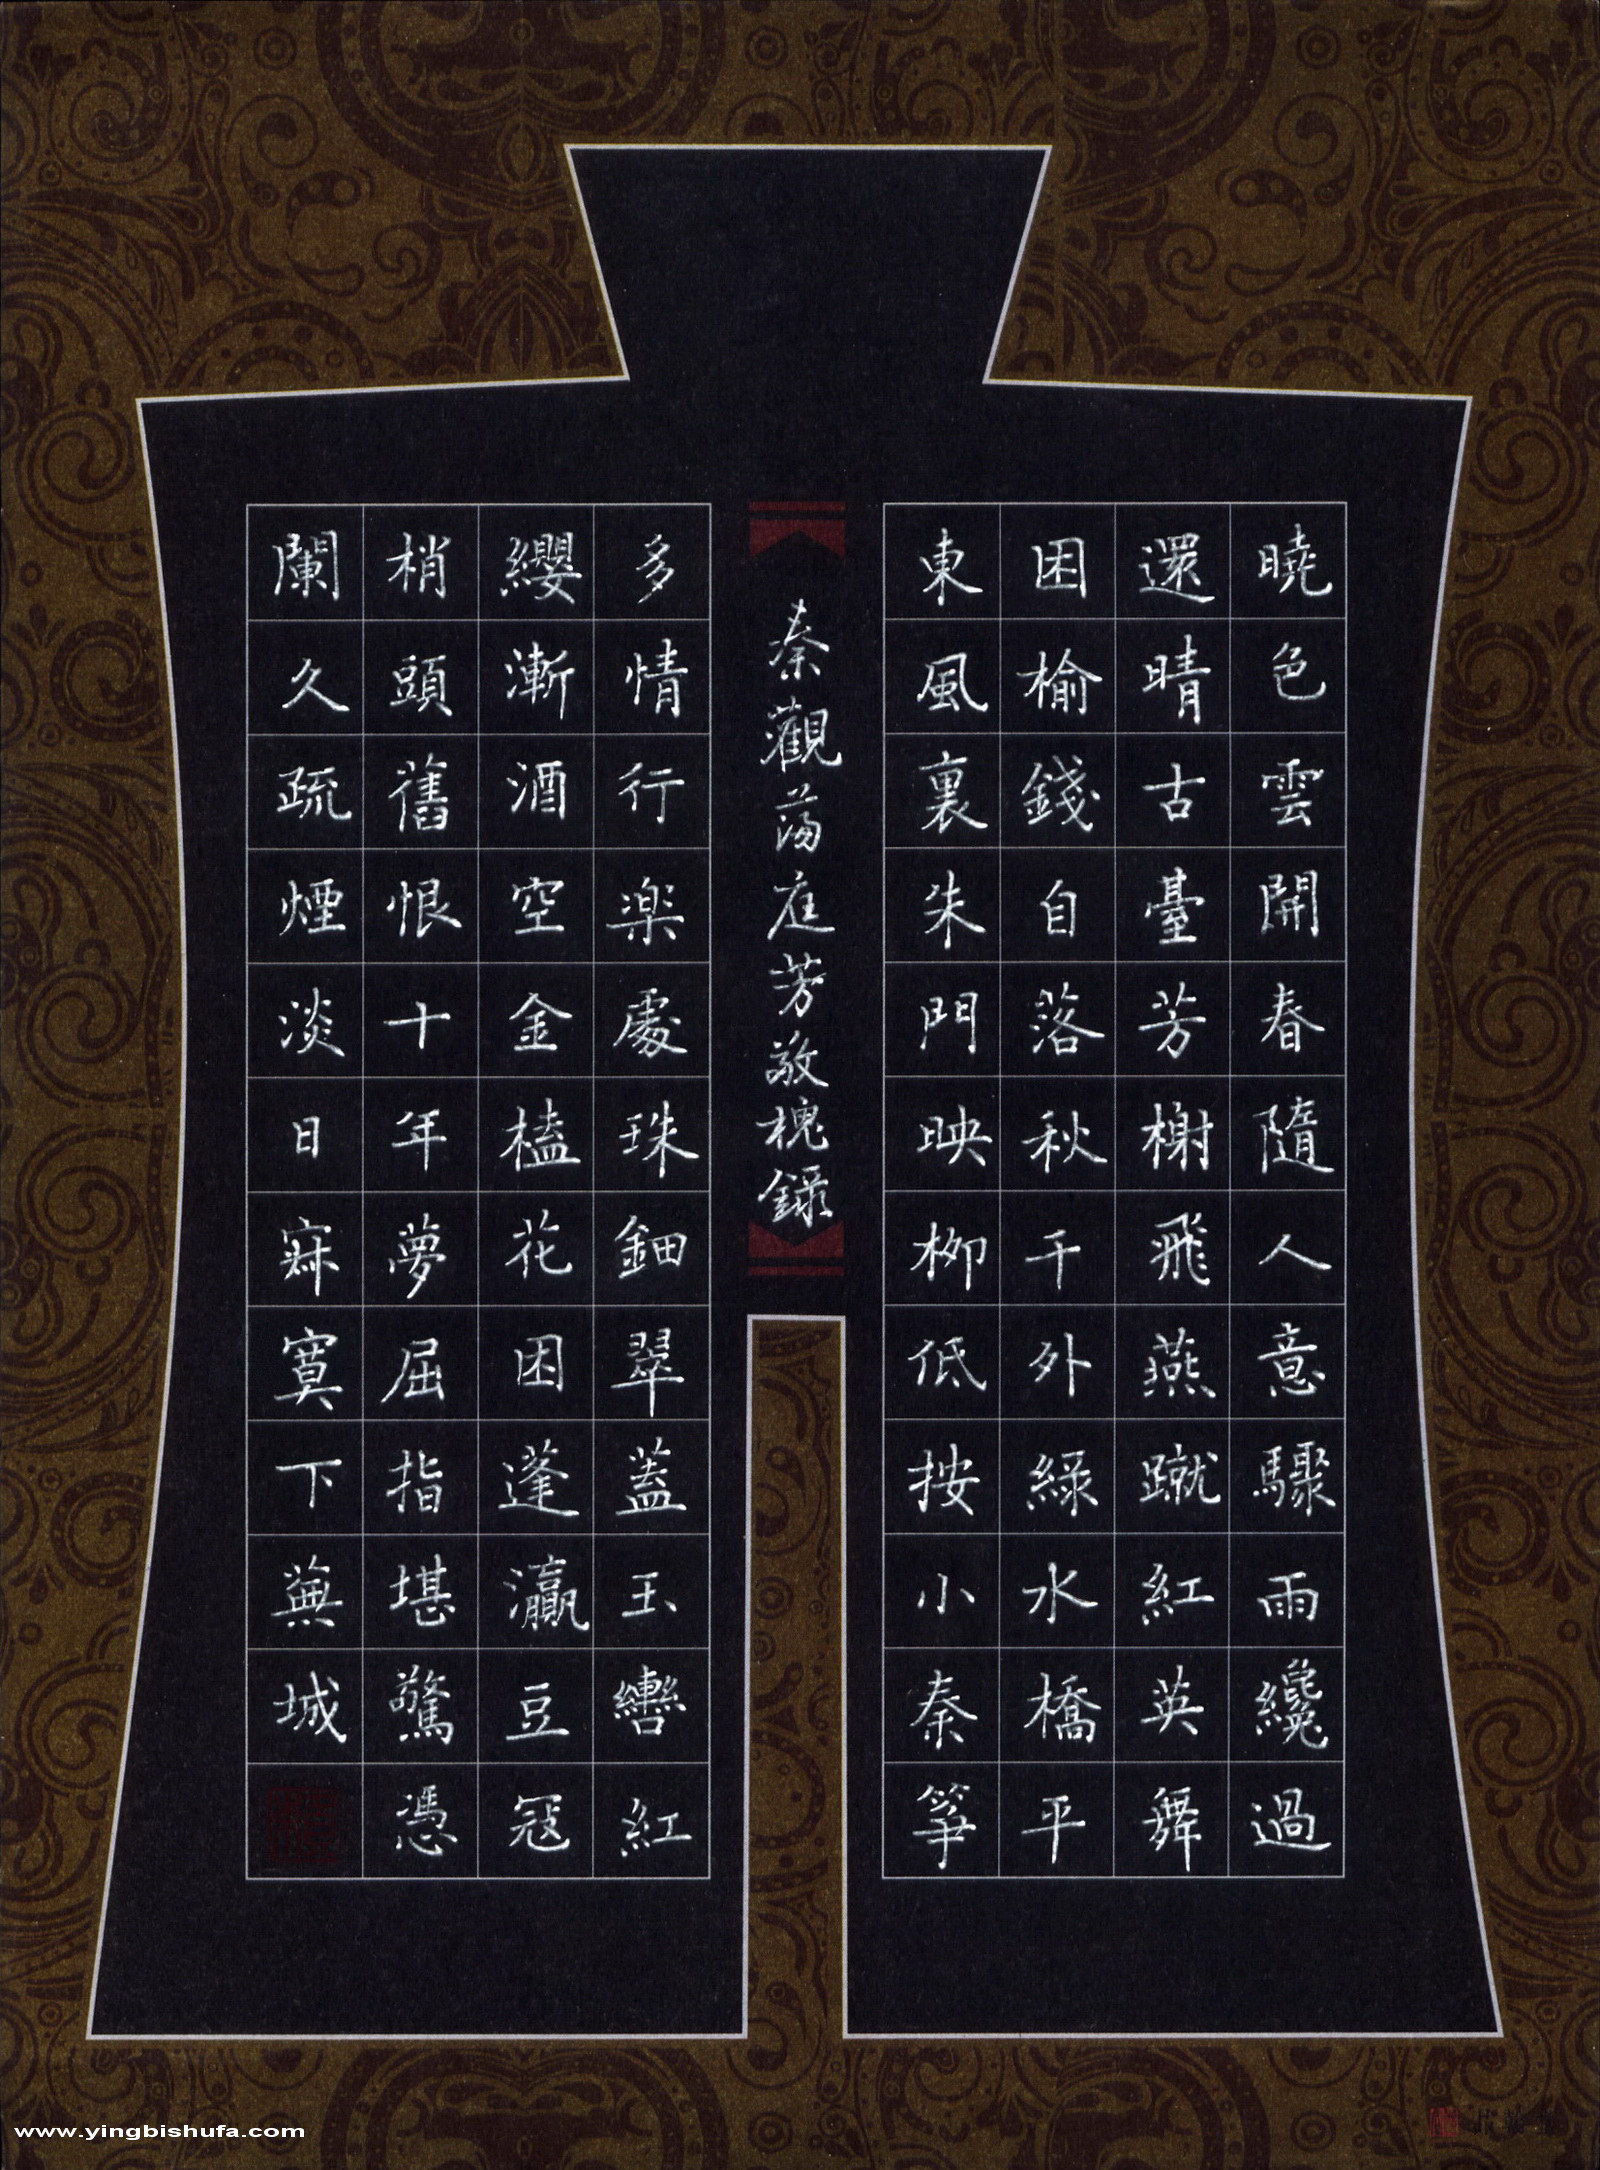 曉色雲開春隨人意驟雨纔過
還晴古臺芳榭飛燕蹴紅英舞
困榆錢自落秋千外綠水橋平
東風裏朱門映柳低按小秦箏
秦觀蕩庭芳敬槐錄
多情行楽處珠鈿翠蓋玉轡紅
纓漸酒空金榼花困蓬瀛豆冦
梢頭舊恨十年夢屈指堪驚憑
闌久疏煙淡日寂寞下蕪城
www.yingbishufa.com